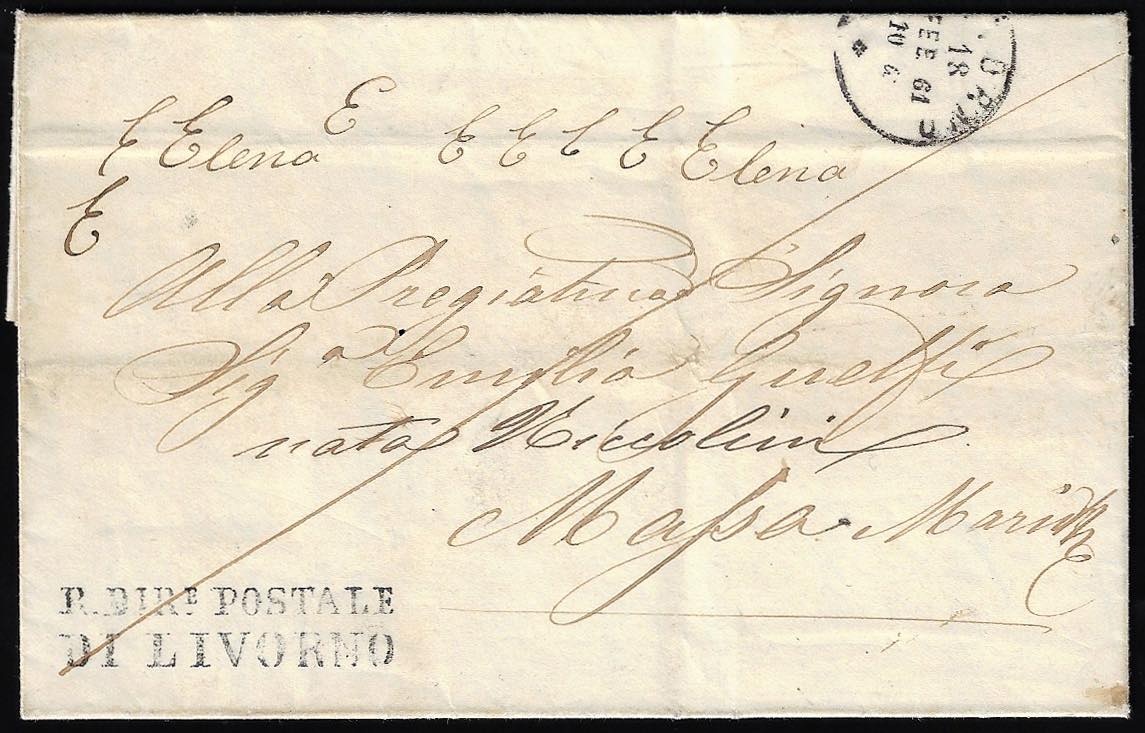 18
FEB 61
10
E
E Elena E E E E Elena
E
Alla Pregiatma Signora
Sigª Emilia Guelfi
nata Niccolini
Massa Maritte
R. DIRE POSTALE
DI LIVORNO